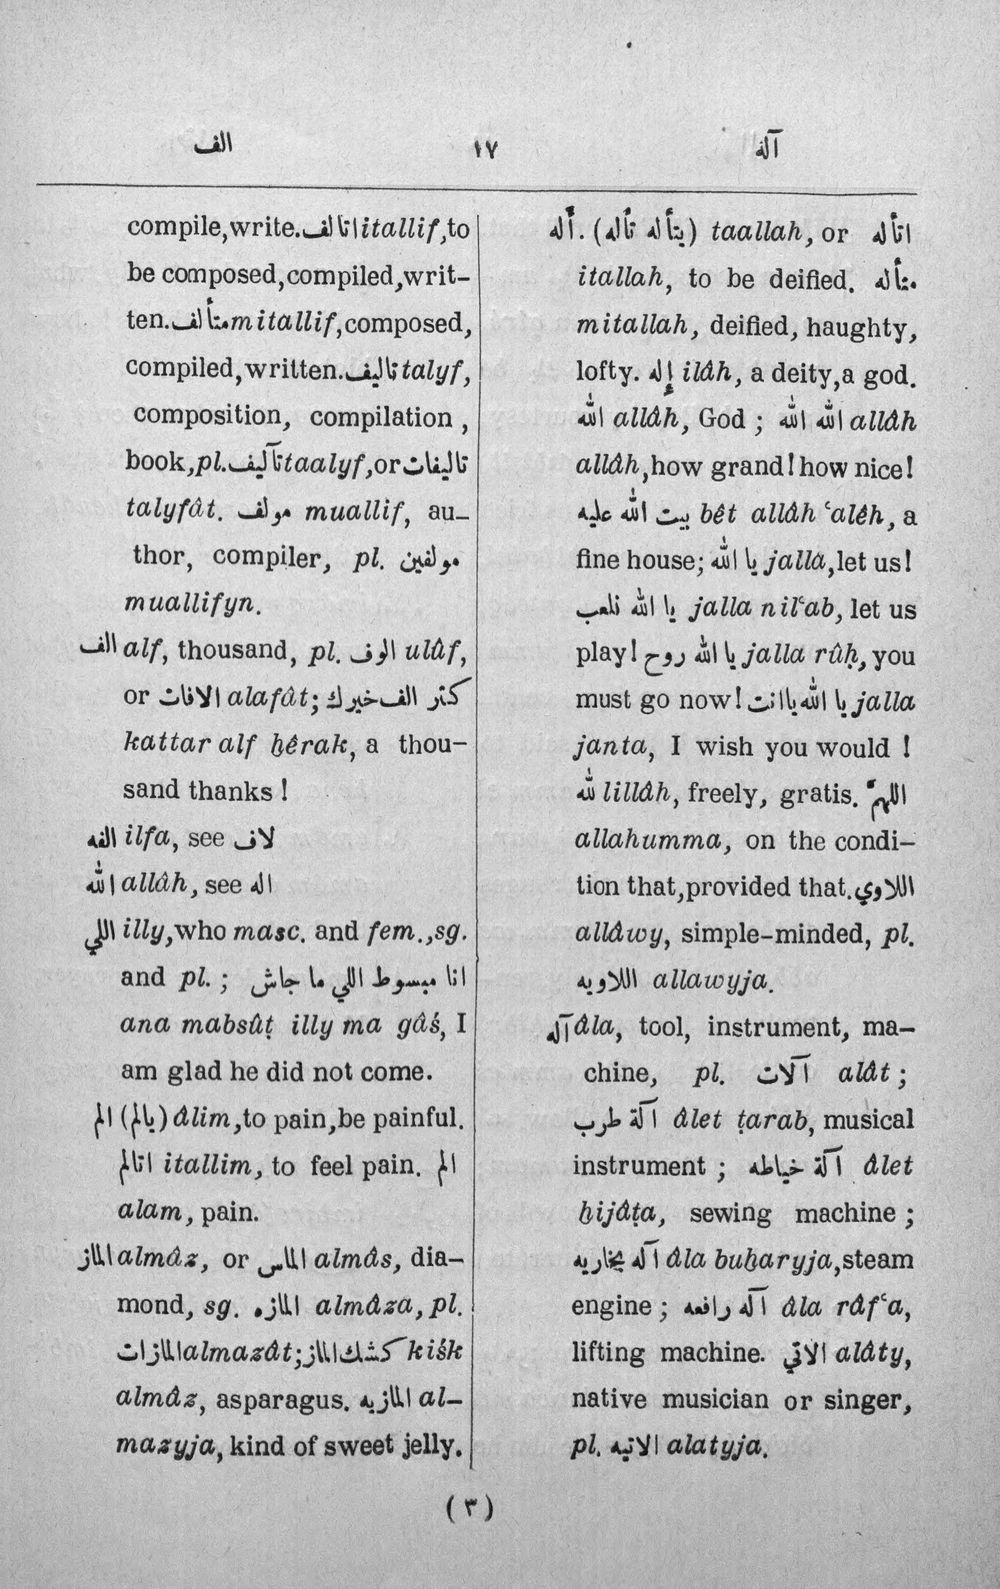 الف ١٧ آلة
compile, write. اتالف itallif, to
be composed, compiled, writ-
ten. متألف mitallif, composed,
compiled, written. تاليف talyf,
composition, compilation,
book, pl. تآليف taalyf, or تاليفات
talyfât. مولف muallif, au-
thor, compiler, pl. مولفين
muallifyn.
الف alf, thousand, pl. الوف ulûf,
or الافات alafât; كتر الف خيرك
kattar alf ḫêrak, a thou-
sand thanks!
الفه ilfa, see لاف
الله allâh, see اله
اللي illy, who masc. and fem., sg.
and pl.; انا مبسوط اللي ما جاش
ana mabsûṭ illy ma gâś, I
am glad he did not come.
الم (يالم) âlim, to pain, be painful.
اتالم itallim, to feel pain. الم
alam, pain.
الماز almâz, or الماس almâs, dia-
mond, sg. المازه almâza, pl.
المازات almazât; كشك الماز kiśk
almâz, asparagus. المازيه al-
mazyja, kind of sweet jelly.
أله. (يتأله تأله) taallah, or اتأله
itallah, to be deified. متأله
mitallah, deified, haughty,
lofty. إله ilâh, a deity, a god.
الله allâh, God; الله الله allâh
allâh, how grand! how nice!
بيت الله عليه bêt allâh ʿalêh, a
fine house; يا الله jalla, let us!
يا الله نلعب jalla nilʿab, let us
play! يا الله روح jalla rûḥ, you
must go now! يا الله ياانت jalla
janta, I wish you would!
لله lillâh, freely, gratis. اللهمّ
allahumma, on the condi-
tion that, provided that. اللاوي
allâwy, simple-minded, pl.
اللاويه allawyja.
آله âla, tool, instrument, ma-
chine, pl. آلات alât;
آلة طرب âlet ṭarab, musical
instrument; آلة خياطه âlet
ḫijâṭa, sewing machine;
آله بخاريه âla buḫaryja, steam
engine; آله رافعه âla râfʿa,
lifting machine. الاتي alâty,
native musician or singer,
pl. الاتيه alatyja.
(٣)